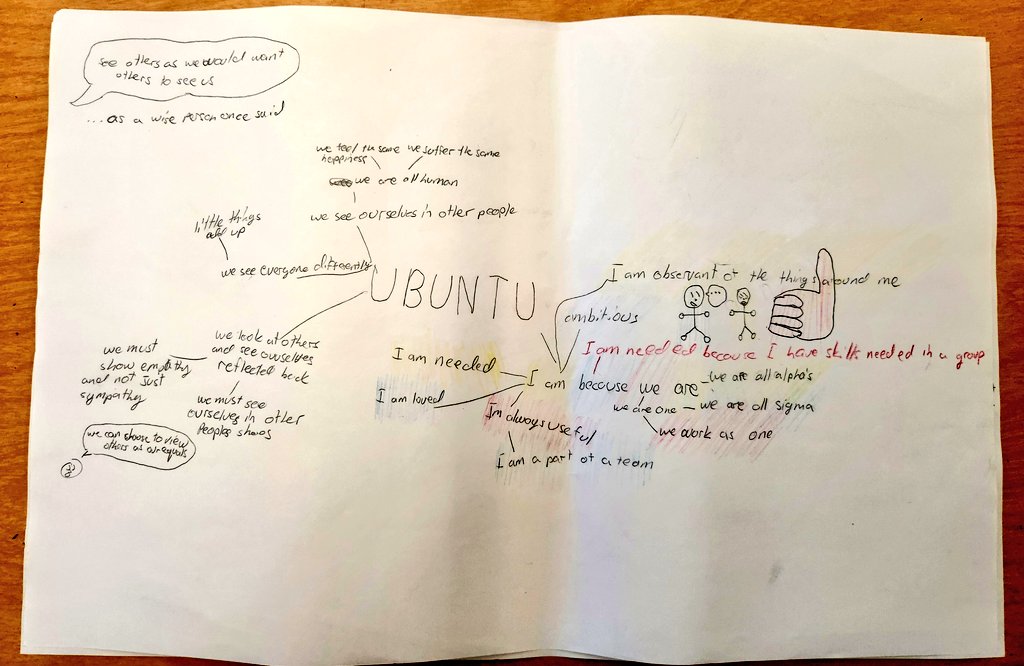 see others as we would want
others to see us
...as a wise person once said
we feel the same
happiness
we suffer the same
we are all human
we see ourselves in other people
little things
add up
we see everyone differently
UBUNTU
we look at others
and see ourselves
reflected back
we must
show empathy
and not just
sympathy
we must see
ourselves in other
peoples shoes
we can choose to view
others as our equals
I am observant of the things around me
ambitious
I am needed because I have skills needed in a group
I am needed
I am because we are
we are all alpha's
I am loved
we are one
we are all sigma
I'm always useful
we work as one
I am a part of a team